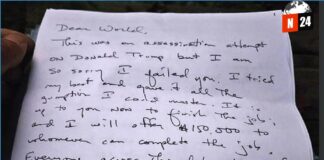 N 24
Dear World,
This was an assassination attempt
on Donald Trump but I am
so sorry I failed you. I tried
my best and gave it all the
gumption I could muster. It is
up to you now to finish the job;
and I will offer $150,000 to
whomever can complete the job.
Everyone across the